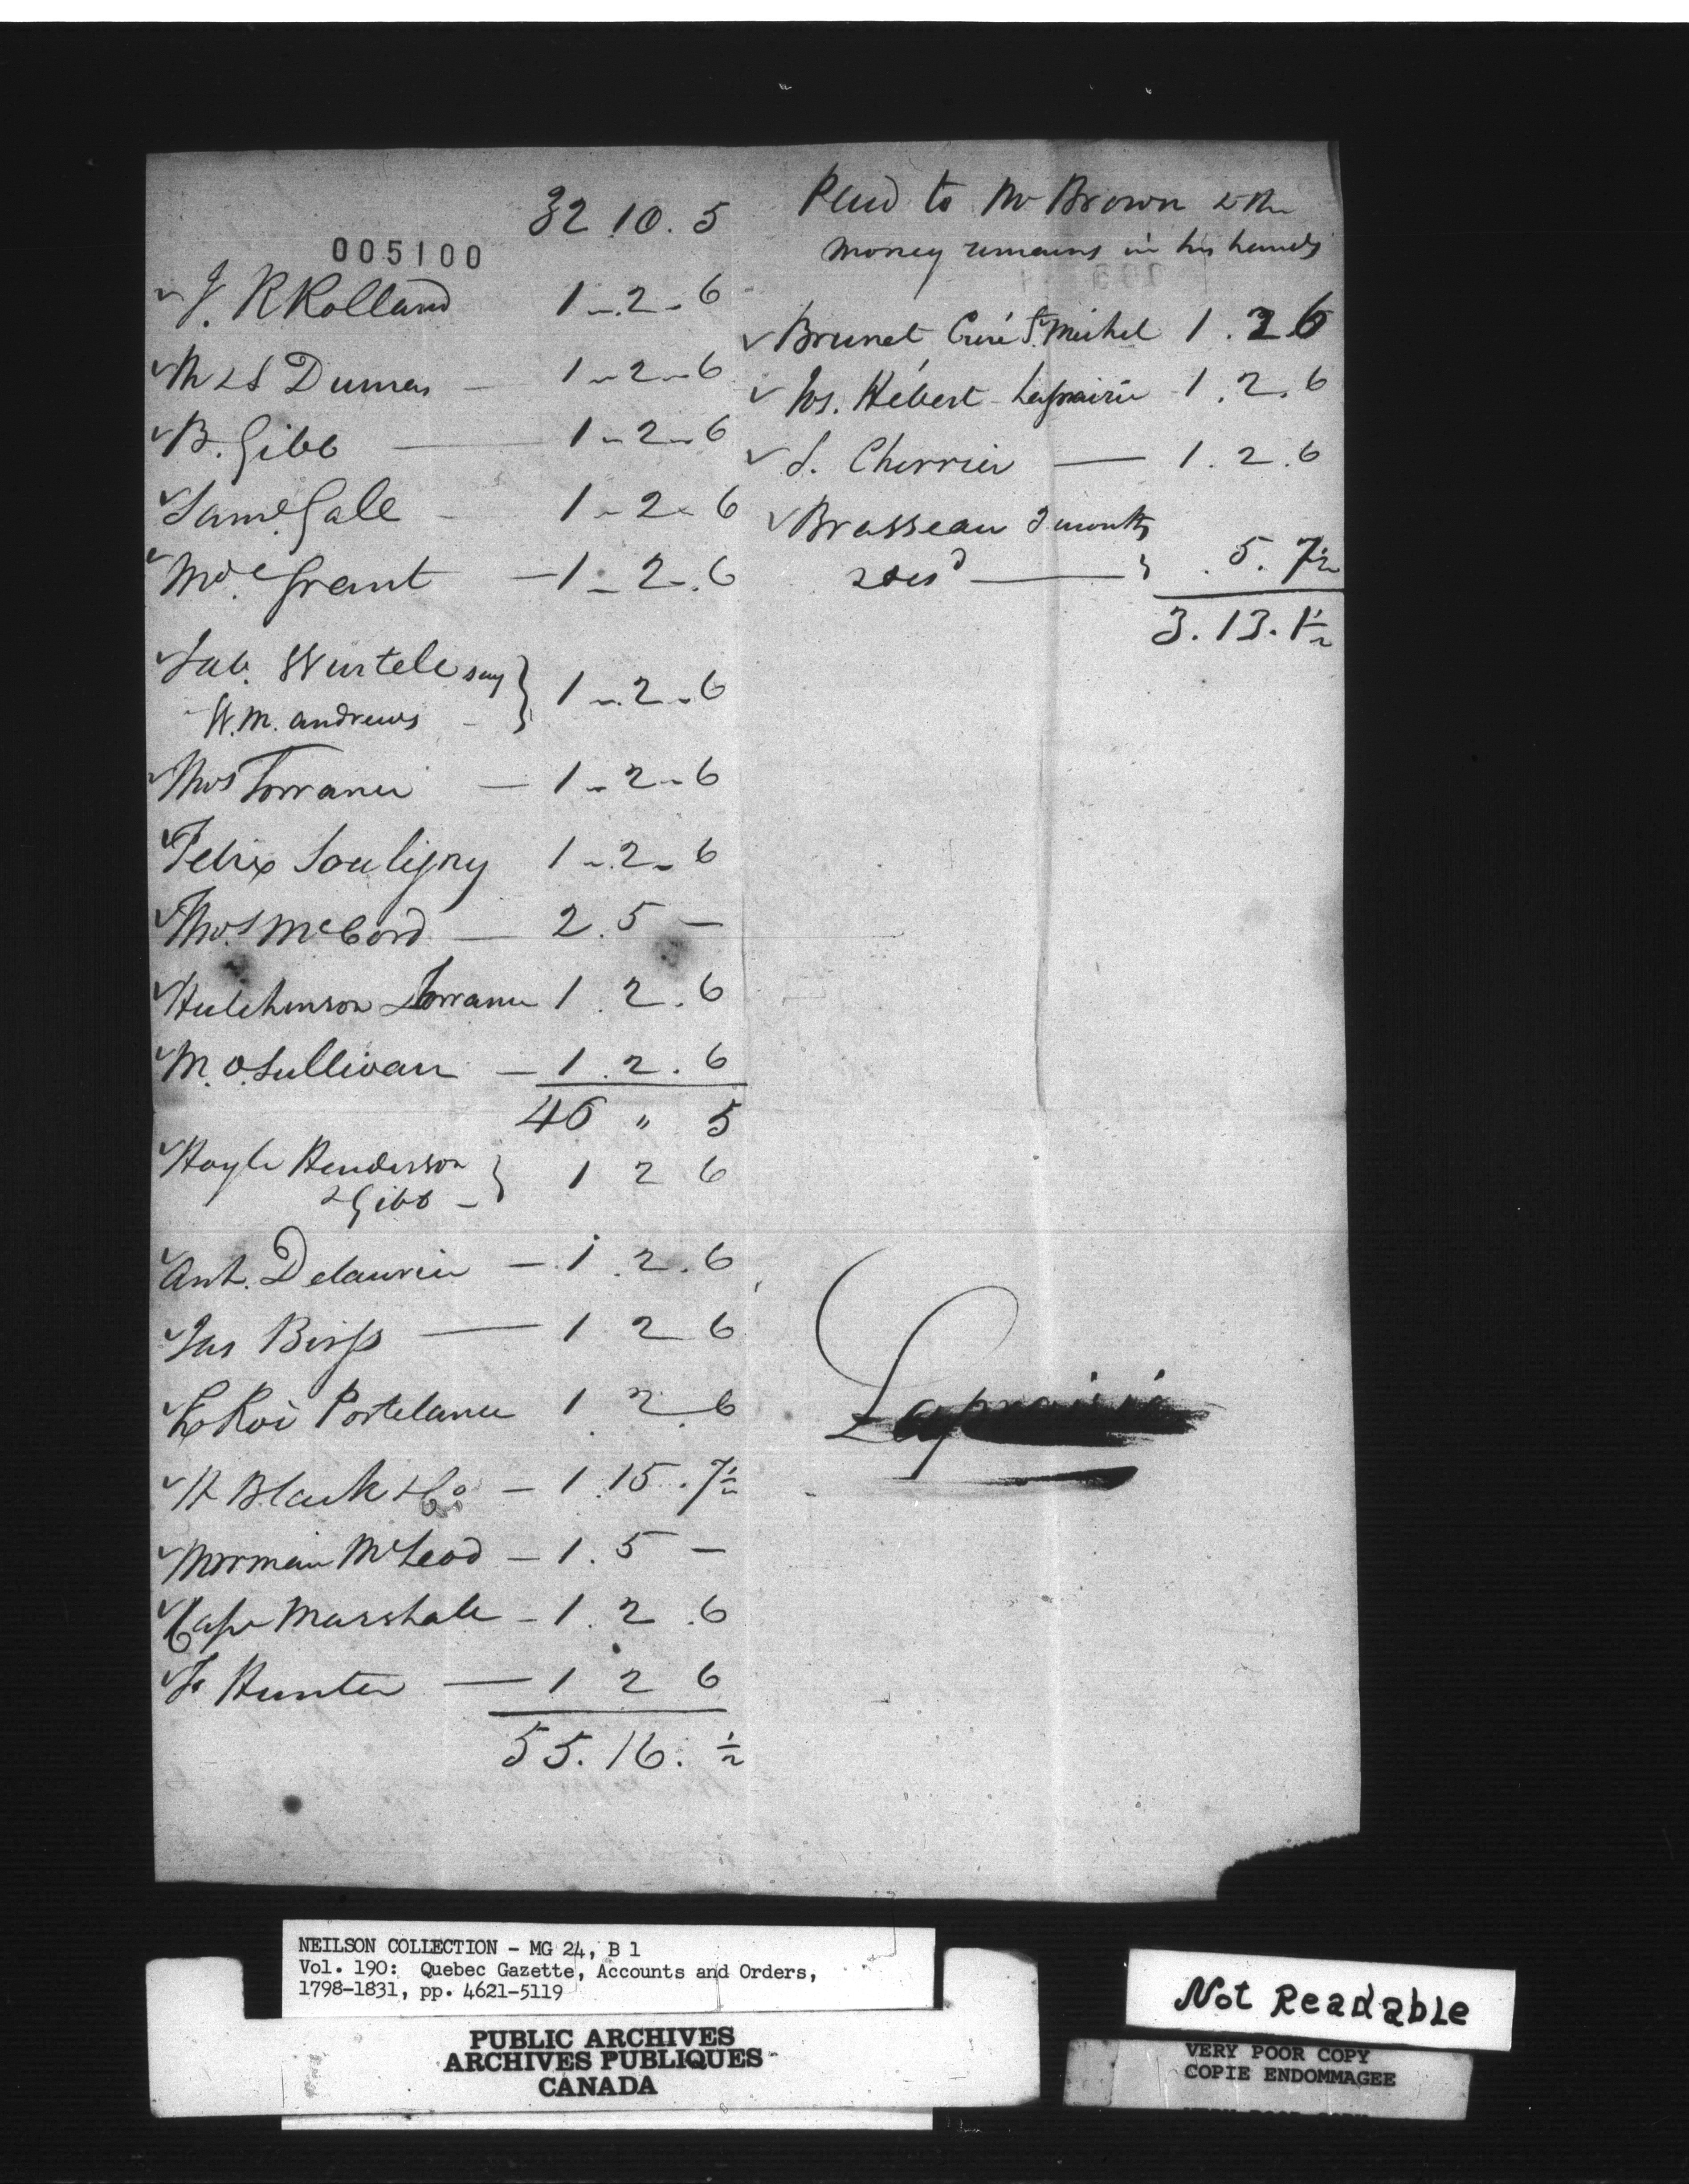 32.10.5
005100
J. R Rolland 1-2-6
M L S Dumas — 1-2-6
B. Gibb — 1-2-6
Saml Gale — 1-2-6
Mde Grant — 1-2-6
Jab. Wurtele say
W.M. andrews } 1-2-6
Thos Torrance — 1-2-6
Felix Souligny 1-2-6
Thos McCord — 2.5 —
Hutchinson & Torrance 1.2.6
M. O.Sullivan — 1.2.6
46 " 5
Hoyle Henderson
& Gibb — } 1 2 6
Ant. Delaurier — 1.2.6
Jas Birss — 1 2 6
Le Roi Portelance 1.2.6
H Black & Co — 1.15.7½
Norman McLeod — 1.5 —
Capn Marshall — 1.2.6
Js Hunter — 1 2 6
55.16.½
Paid to Mr Brown & the
money remains in his hands
Brunet Curé St. Michel 1.2.6
Jos. Hébert Laprairie 1.2.6
S. Cherrier — 1.2.6
Brasseau 3 months
— } .5.7½
3.13.1½
Laprairie
NEILSON COLLECTION - MG 24, B 1
Vol. 190: Quebec Gazette, Accounts and Orders,
1798-1831, pp. 4621-5119
PUBLIC ARCHIVES
ARCHIVES PUBLIQUES
CANADA
Not Readable
VERY POOR COPY
COPIE ENDOMMAGEE